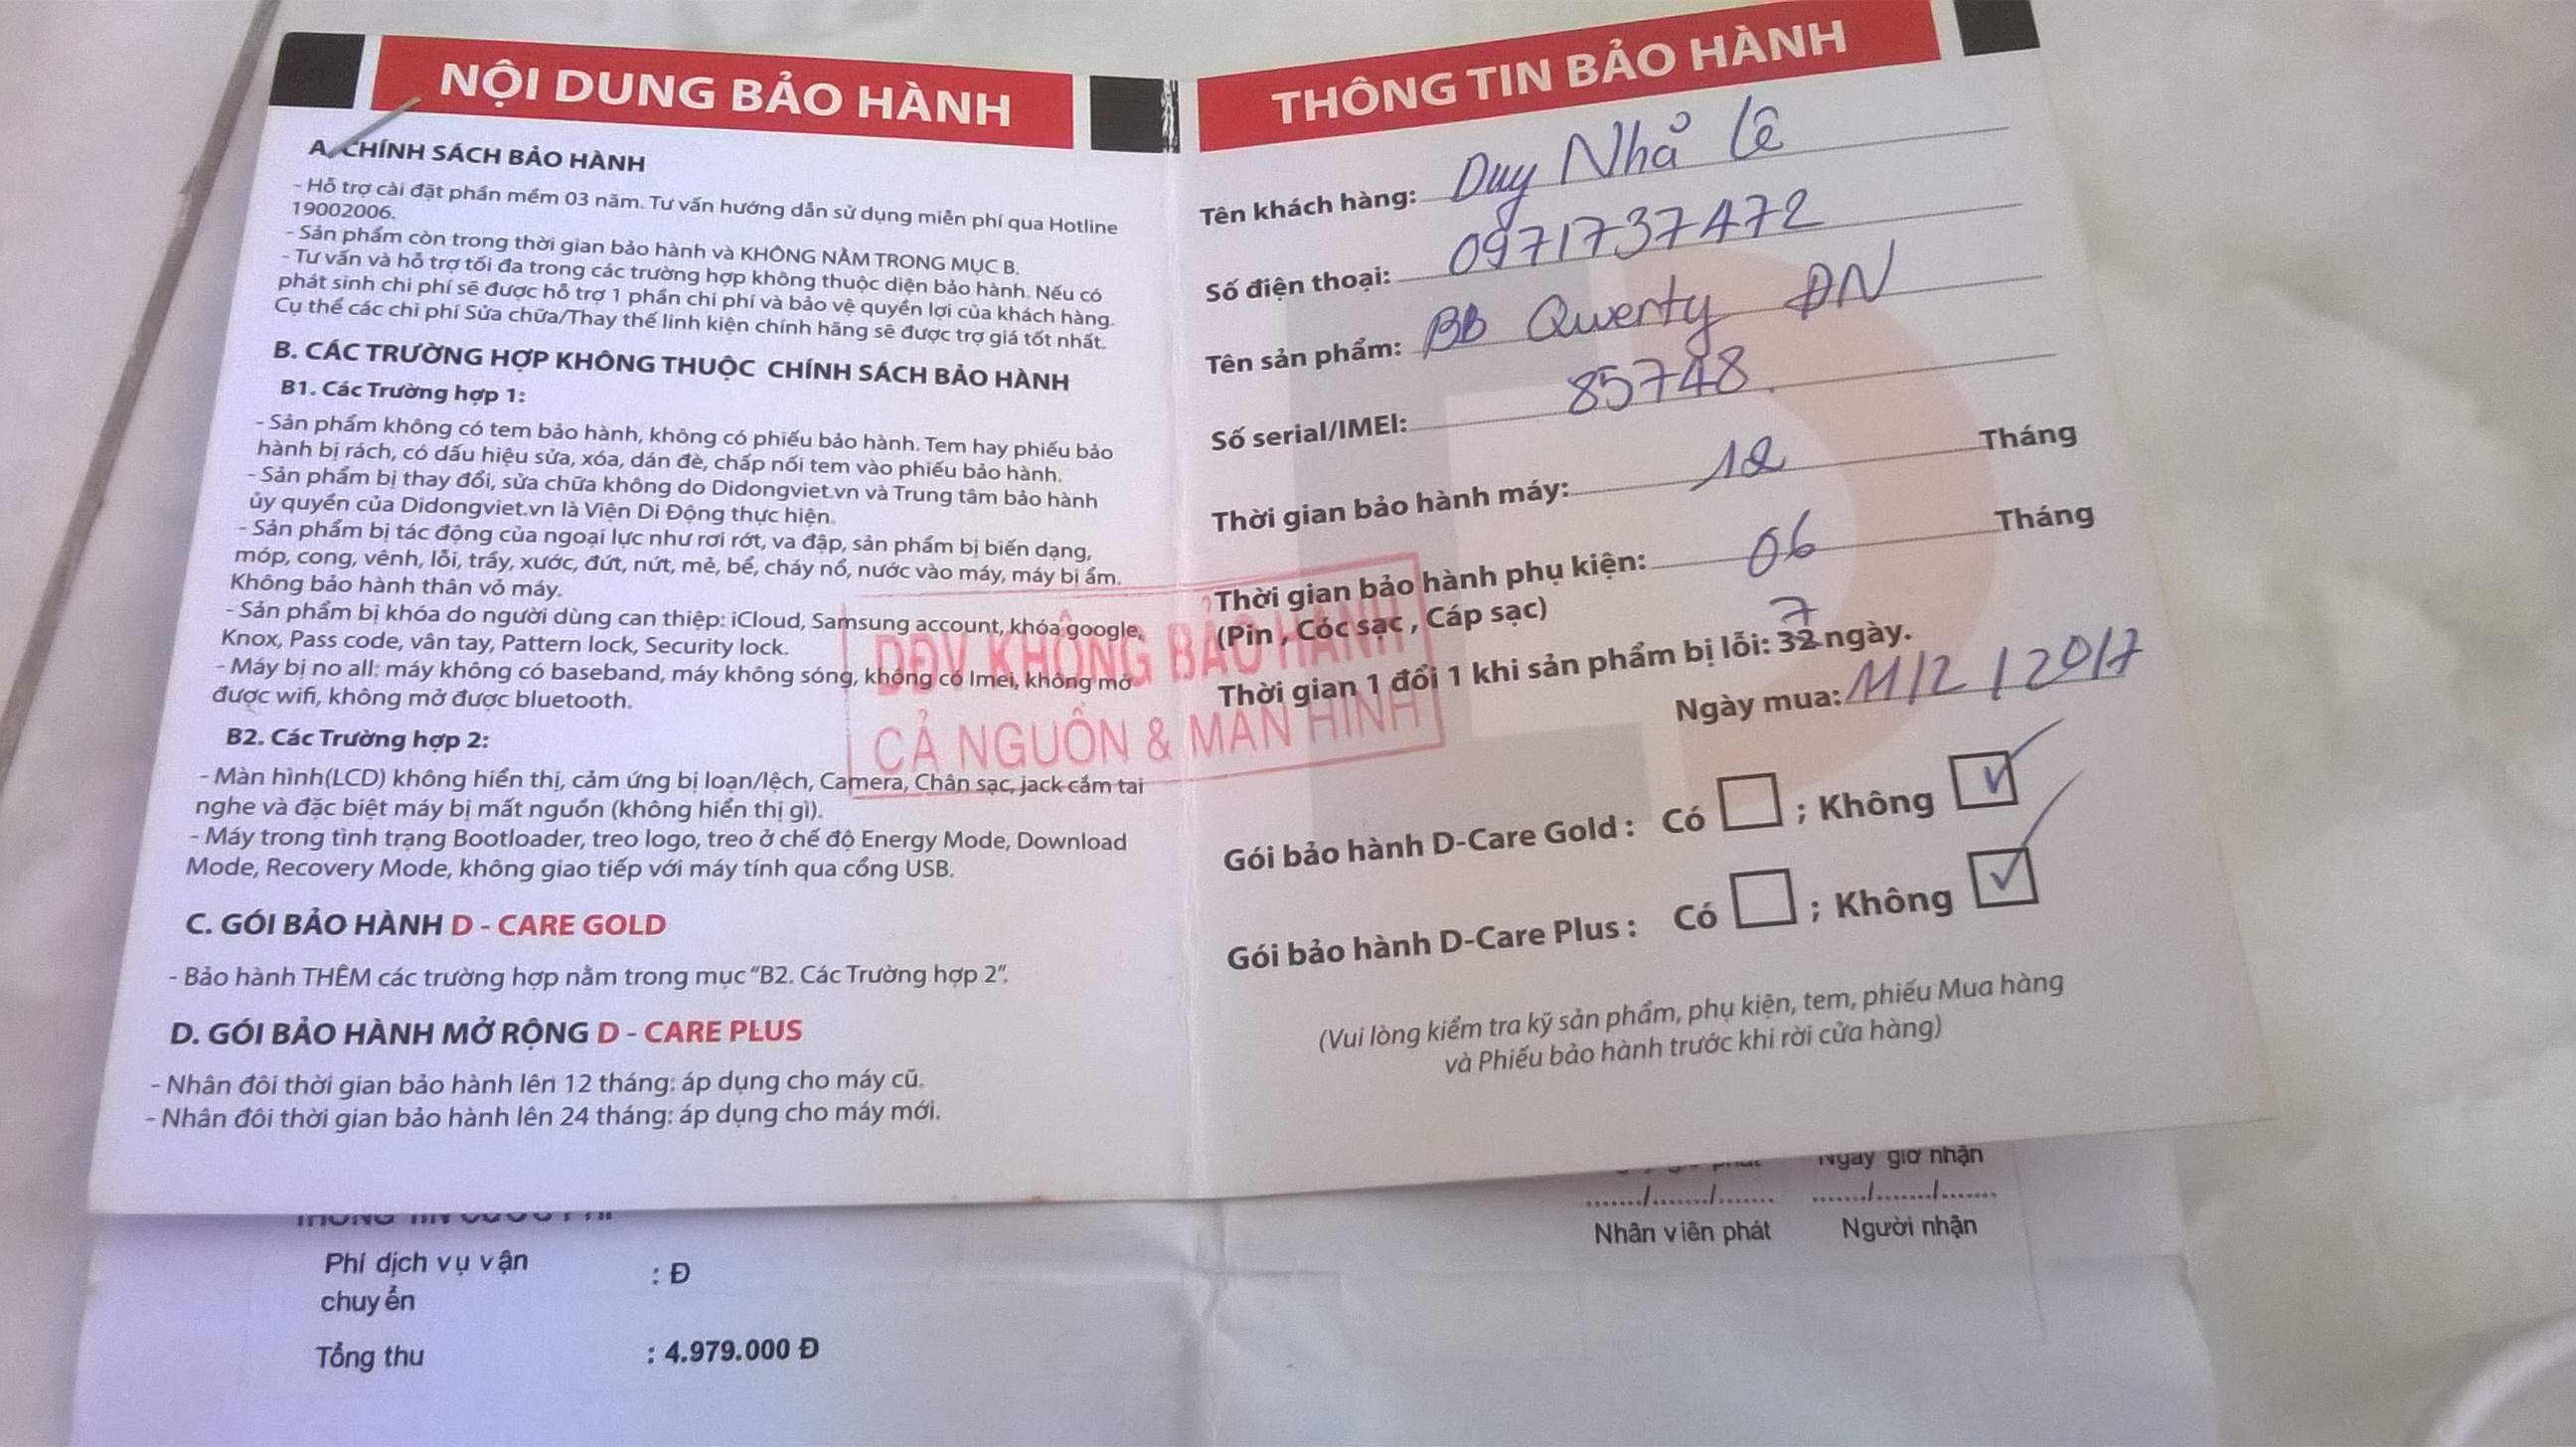 NỘI DUNG BẢO HÀNH
A. CHÍNH SÁCH BẢO HÀNH
- Hỗ trợ cài đặt phần mềm 03 năm. Tư vấn hướng dẫn sử dụng miễn phí qua Hotline
19002006.
- Sản phẩm còn trong thời gian bảo hành và KHÔNG NẰM TRONG MỤC B.
- Tư vấn và hỗ trợ tối đa trong các trường hợp không thuộc diện bảo hành. Nếu có
phát sinh chi phí sẽ được hỗ trợ 1 phần chi phí và bảo vệ quyền lợi của khách hàng.
Cụ thể các chi phí Sửa chữa/Thay thế linh kiện chính hãng sẽ được trợ giá tốt nhất.
B. CÁC TRƯỜNG HỢP KHÔNG THUỘC CHÍNH SÁCH BẢO HÀNH
B1. Các Trường hợp 1:
- Sản phẩm không có tem bảo hành, không có phiếu bảo hành. Tem hay phiếu bảo
hành bị rách, có dấu hiệu sửa, xóa, dán đè, chấp nối tem vào phiếu bảo hành.
- Sản phẩm bị thay đổi, sửa chữa không do Didongviet.vn và Trung tâm bảo hành
ủy quyền của Didongviet.vn là Viện Di Động thực hiện.
- Sản phẩm bị tác động của ngoại lực như rơi rớt, va đập, sản phẩm bị biến dạng,
móp, cong, vênh, lỗi, trầy, xước, đứt, nứt, mẻ, bể, cháy nổ, nước vào máy, máy bị ẩm.
Không bảo hành thân vỏ máy.
- Sản phẩm bị khóa do người dùng can thiệp: iCloud, Samsung account, khóa google,
Knox, Pass code, vân tay, Pattern lock, Security lock.
- Máy bị no all: máy không có baseband, máy không sóng, không có Imei, không mở
được wifi, không mở được bluetooth.
B2. Các Trường hợp 2:
- Màn hình(LCD) không hiển thị, cảm ứng bị loạn/lệch, Camera, Chân sạc, jack cắm tai
nghe và đặc biệt máy bị mất nguồn (không hiển thị gì).
- Máy trong tình trạng Bootloader, treo logo, treo ở chế độ Energy Mode, Download
Mode, Recovery Mode, không giao tiếp với máy tính qua cổng USB.
C. GÓI BẢO HÀNH D - CARE GOLD
- Bảo hành THÊM các trường hợp nằm trong mục "B2. Các Trường hợp 2".
D. GÓI BẢO HÀNH MỞ RỘNG D - CARE PLUS
- Nhân đôi thời gian bảo hành lên 12 tháng: áp dụng cho máy cũ.
- Nhân đôi thời gian bảo hành lên 24 tháng: áp dụng cho máy mới.
DĐV KHÔNG BẢO HÀNH
CẢ NGUỒN & MÀN HÌNH
THÔNG TIN BẢO HÀNH
Tên khách hàng: Duy Nhả Lê
Số điện thoại: 0971737472
Tên sản phẩm: BB Qwerty ĐN
Số serial/IMEI: 85748.
Thời gian bảo hành máy: 12 Tháng
Thời gian bảo hành phụ kiện: 06 Tháng
(Pin , Cóc sạc , Cáp sạc)
7
Thời gian 1 đổi 1 khi sản phẩm bị lỗi: 32 ngày.
Ngày mua: 11/2/2017
Gói bảo hành D-Care Gold : Có ; Không ✓
Gói bảo hành D-Care Plus : Có ; Không ✓
(Vui lòng kiểm tra kỹ sản phẩm, phụ kiện, tem, phiếu Mua hàng
và Phiếu bảo hành trước khi rời cửa hàng)
Ngày giờ nhận
......./......./....... ......./......./.......
Nhân viên phát Người nhận
Phí dịch vụ vận : Đ
chuyển
Tổng thu : 4.979.000 Đ